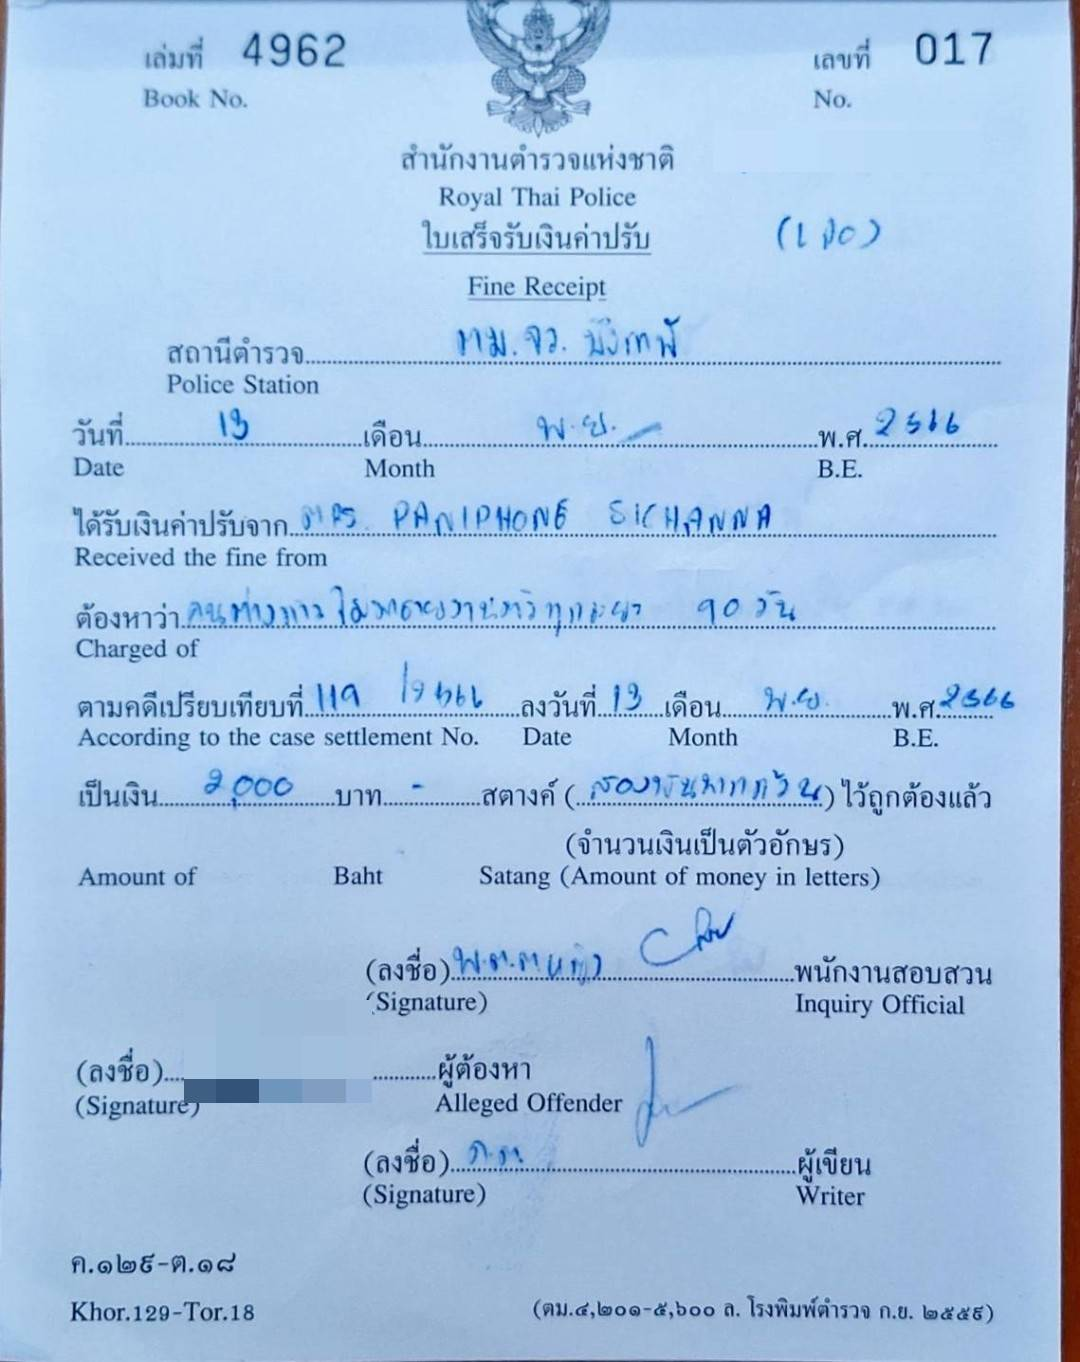 เล่มที่ 4962 เลขที่ 017
Book No. No.
สำนักงานตำรวจแห่งชาติ
Royal Thai Police
ใบเสร็จรับเงินค่าปรับ
Fine Receipt
สถานีตำรวจ ตม.จว. บึงกาฬ
Police Station
วันที่ 13 เดือน พ.ย. พ.ศ. 2566
Date Month B.E.
ได้รับเงินค่าปรับจาก MRS. PANIPHONE SICHANNA
Received the fine from
ต้องหาว่า คนต่างด้าว ไม่ 90 วัน
Charged of
ตามคดีเปรียบเทียบที่ 119 /2566 ลงวันที่ 13 เดือน พ.ย. พ.ศ. 2566
According to the case settlement No. Date Month B.E.
เป็นเงิน 2,000 บาท - สตางค์ (สองพันบาทถ้วน) ไว้ถูกต้องแล้ว
(จำนวนเงินเป็นตัวอักษร)
Amount of Baht Satang (Amount of money in letters)
(ลงชื่อ) พ.ต.ต.หญิง พนักงานสอบสวน
(Signature) Inquiry Official
(ลงชื่อ) ผู้ต้องหา
(Signature) Alleged Offender
(ลงชื่อ) ด.ต. ผู้เขียน
(Signature) Writer
ค.๑๒๙-ต.๑๘
Khor.129-Tor.18 (ตม.๔,๒๐๑-๕,๖๐๐ ล. โรงพิมพ์ตำรวจ ก.ย. ๒๕๕๙)